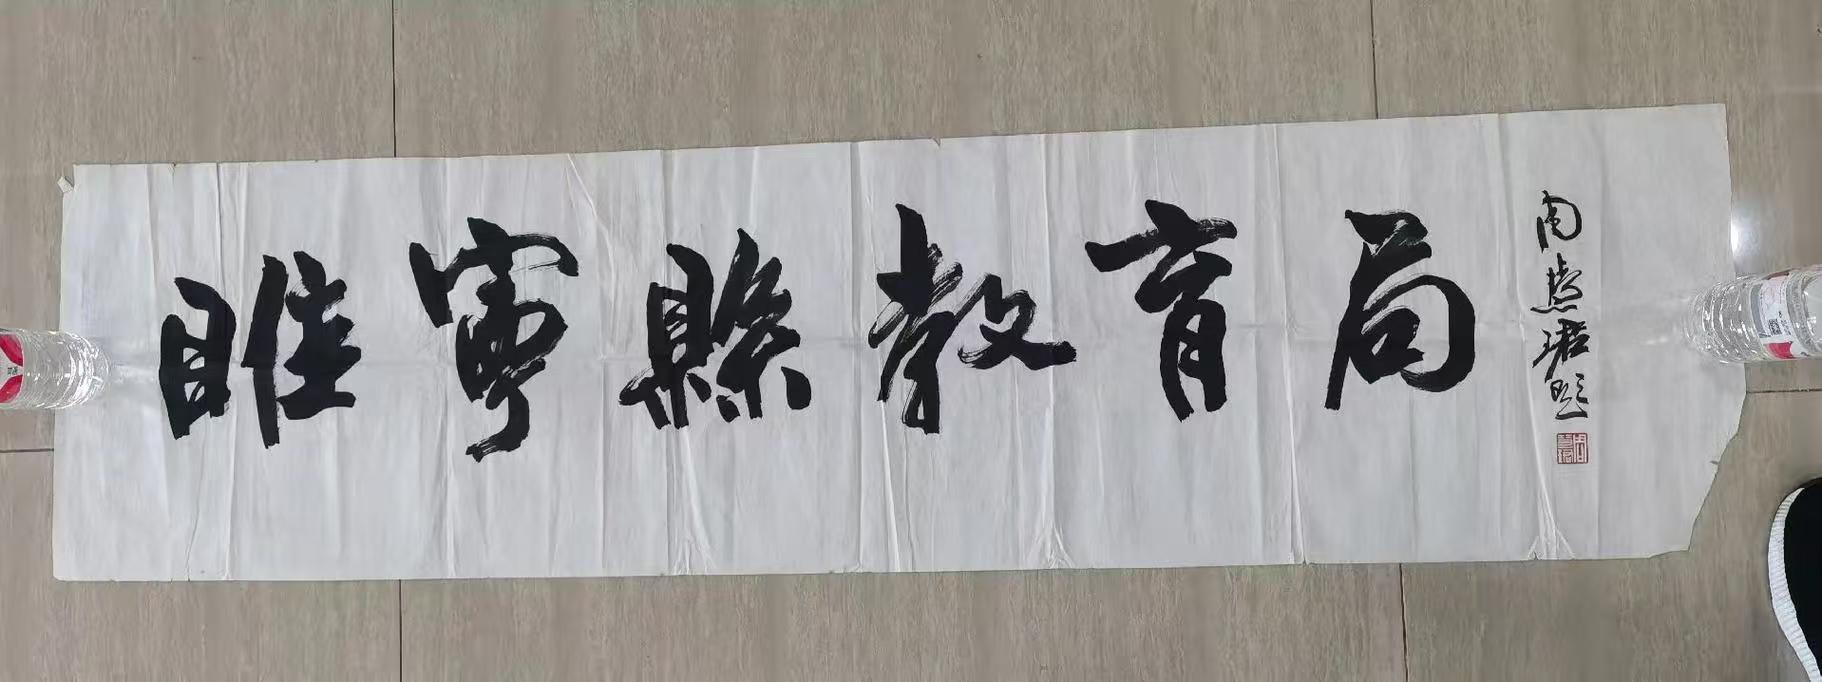 睢寧縣教育局
周慧珺題